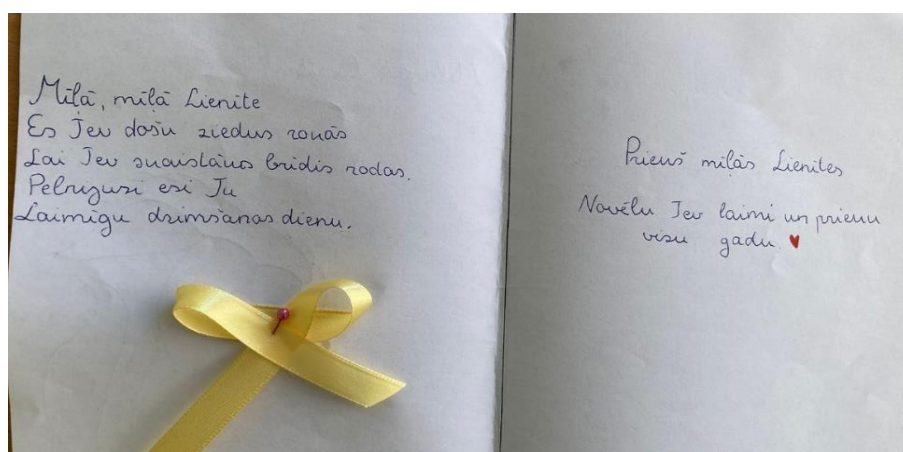 Mīļā, mīļā Lienite
Es Tev došu ziedus zonās
Lai Tev snaistānos brīdis rodas.
Pelnyusi esi Tu
Laimīgu dzimšanas dienu.
Prieuš mīļās Lienites
Novēlu Tev laimi un prieuu
visu gadu